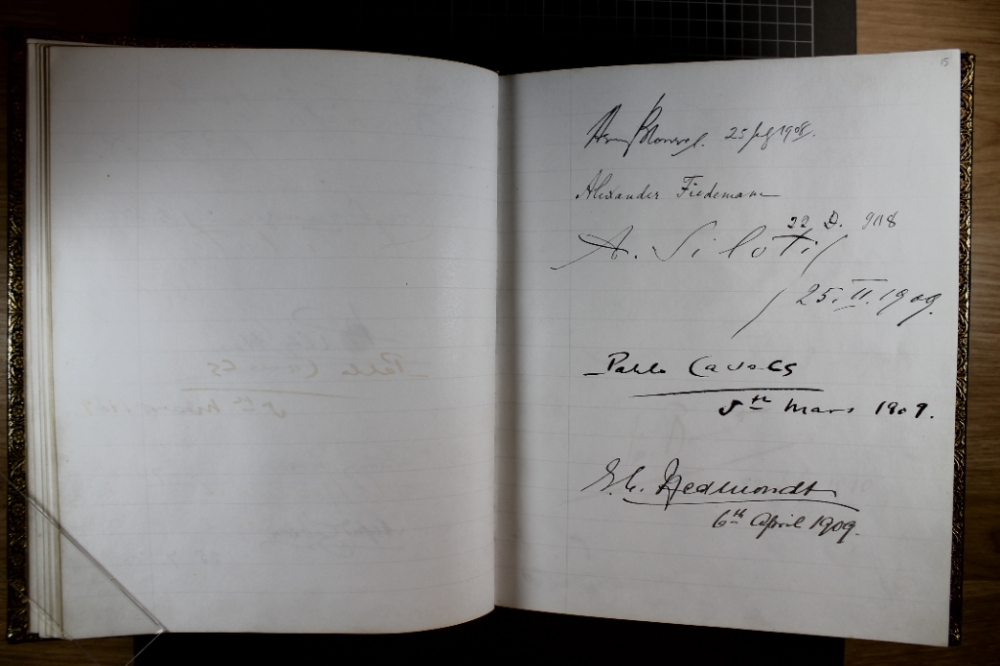 15
25 1908.
Alexander Fiedemann
22 D. 908
A. Siloti
25. II. 1909.
Pablo Casals
5th Mars 1909.
E. C. Hedmondt
6th April 1909.